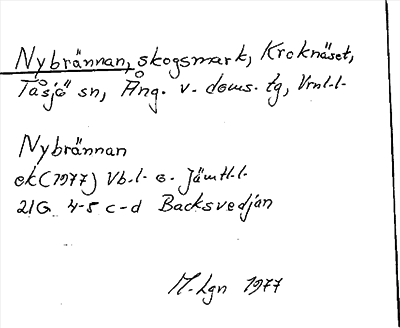 Nybrännan, skogsmark, Kroknäset,
Tåsjö sn, Ång. v. doms. tg, Vrnl.l.
Nybrännan
ek (1977) Vb.l. o. Jämtl.l.
21G 4-5 c-d Backsvedjan
M.Lgn 1977